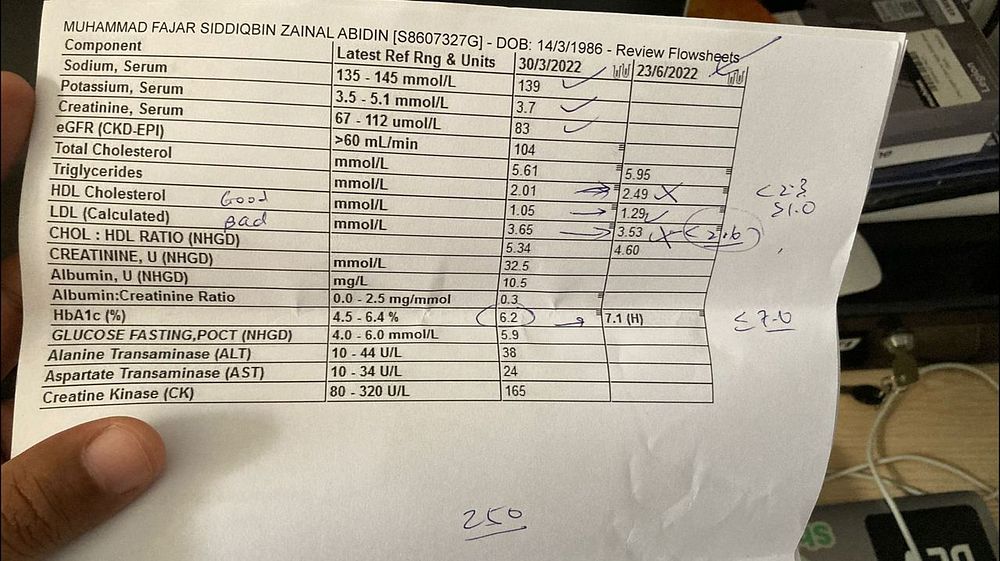 MUHAMMAD FAJAR SIDDIQBIN ZAINAL ABIDIN [S8607327G] - DOB: 14/3/1986 - Review Flowsheets
Component Latest Ref Rng & Units 30/3/2022 23/6/2022
Sodium, Serum 135 - 145 mmol/L 139
Potassium, Serum 3.5 - 5.1 mmol/L 3.7
Creatinine, Serum 67 - 112 umol/L 83
eGFR (CKD-EPI) >60 mL/min 104
Total Cholesterol mmol/L 5.61 5.95
Triglycerides mmol/L 2.01 2.49 < 2.3
HDL Cholesterol Good mmol/L 1.05 1.29 >1.0
LDL (Calculated) Bad mmol/L 3.65 3.53 < 2.6
CHOL : HDL RATIO (NHGD) 5.34 4.60
CREATININE, U (NHGD) mmol/L 32.5
Albumin, U (NHGD) mg/L 10.5
Albumin:Creatinine Ratio 0.0 - 2.5 mg/mmol 0.3
HbA1c (%) 4.5 - 6.4 % 6.2 7.1 (H) ≤ 7.0
GLUCOSE FASTING,POCT (NHGD) 4.0 - 6.0 mmol/L 5.9
Alanine Transaminase (ALT) 10 - 44 U/L 38
Aspartate Transaminase (AST) 10 - 34 U/L 24
Creatine Kinase (CK) 80 - 320 U/L 165
250
Legion